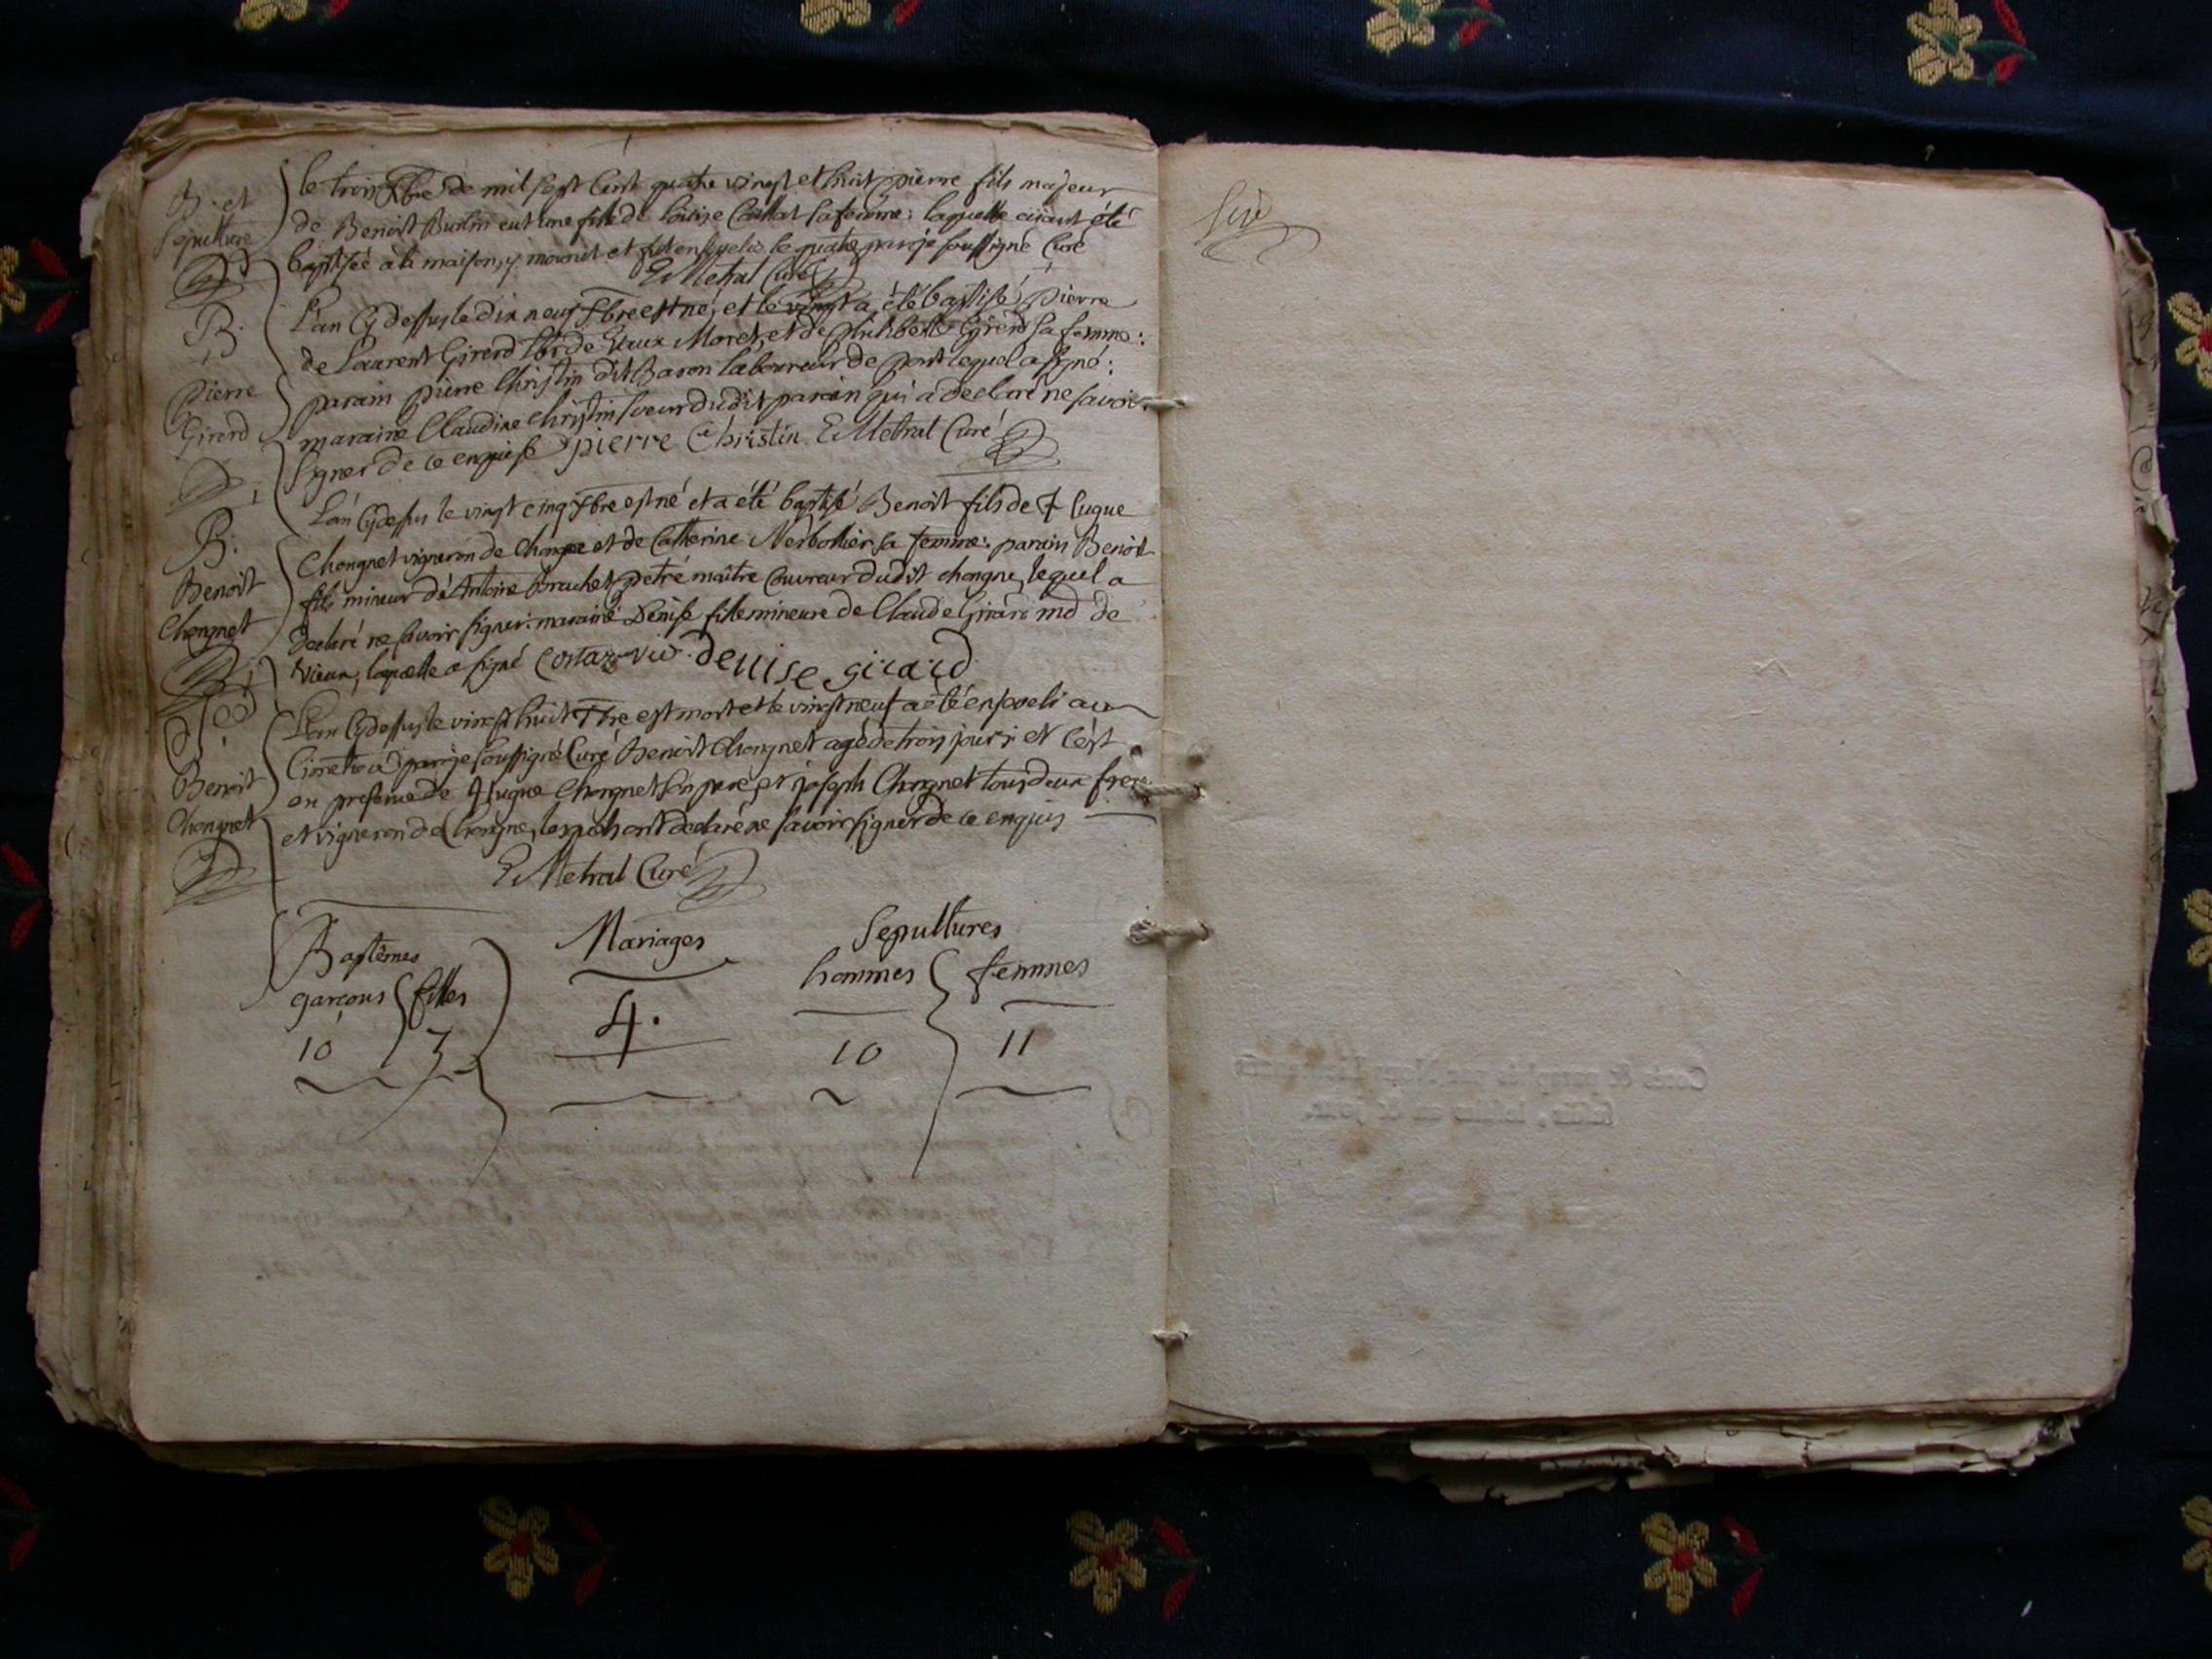 B. et
Sepulture
le trois Xbre de mil sept cent quatre vingt et huit pierre fils majeur
de Benoit Burlin eut une fille de Louise Caillat sa femme: laquelle aiiant été
baptisée a la maison, y mourut et fut ensevelie le quatre par je soussigné Curé
E. Metral Curé
B.
Pierre
Girerd
L'an Cy dessus le dix neuf Xbre est né, et le vingt a été baptisé Pierre
de Laurent Girerd de Moret, et de Philiberte Girerd sa femme:
parain pierre Christin dit Baron laboureur de Pont lequel a signé:
maraine Claudine Christin soeur dudit parain qui a declaré ne savoir
signer de ce enquise pierre Christin E. Metral Curé
B.
Benoit
Chongnet
L'an Cy dessus le vingt cinq Xbre est né et a été baptisé Benoit fils de hugue
Chongnet vigneron de Chongne et de Catherine sa femme: parain Benoit
fils mineur d'Antoine Brachet petré maître Couvreur dudit chongne, lequel a
declaré ne savoir signer: maraine Denise fille mineure de Claude Girard md de
Vieux, laquelle a signé denise girard
Benoit
Chongnet
L'an Cy dessus le vingt huit Xbre est mort et le vingt neuf a été enseveli au
Cimetiere par je soussigné Curé Benoit Chongnet agé de trois jours: et c'est
en presence de hugue Chongnet son pere, et joseph Chongnet tous deux freres
et vigneron de Chongne, lesquels ont declaré ne savoir signer de ce enquis
E. Metral Curé
Baptêmes Mariages Sepultures
garçons filles hommes femmes
10 7 4. 10 11